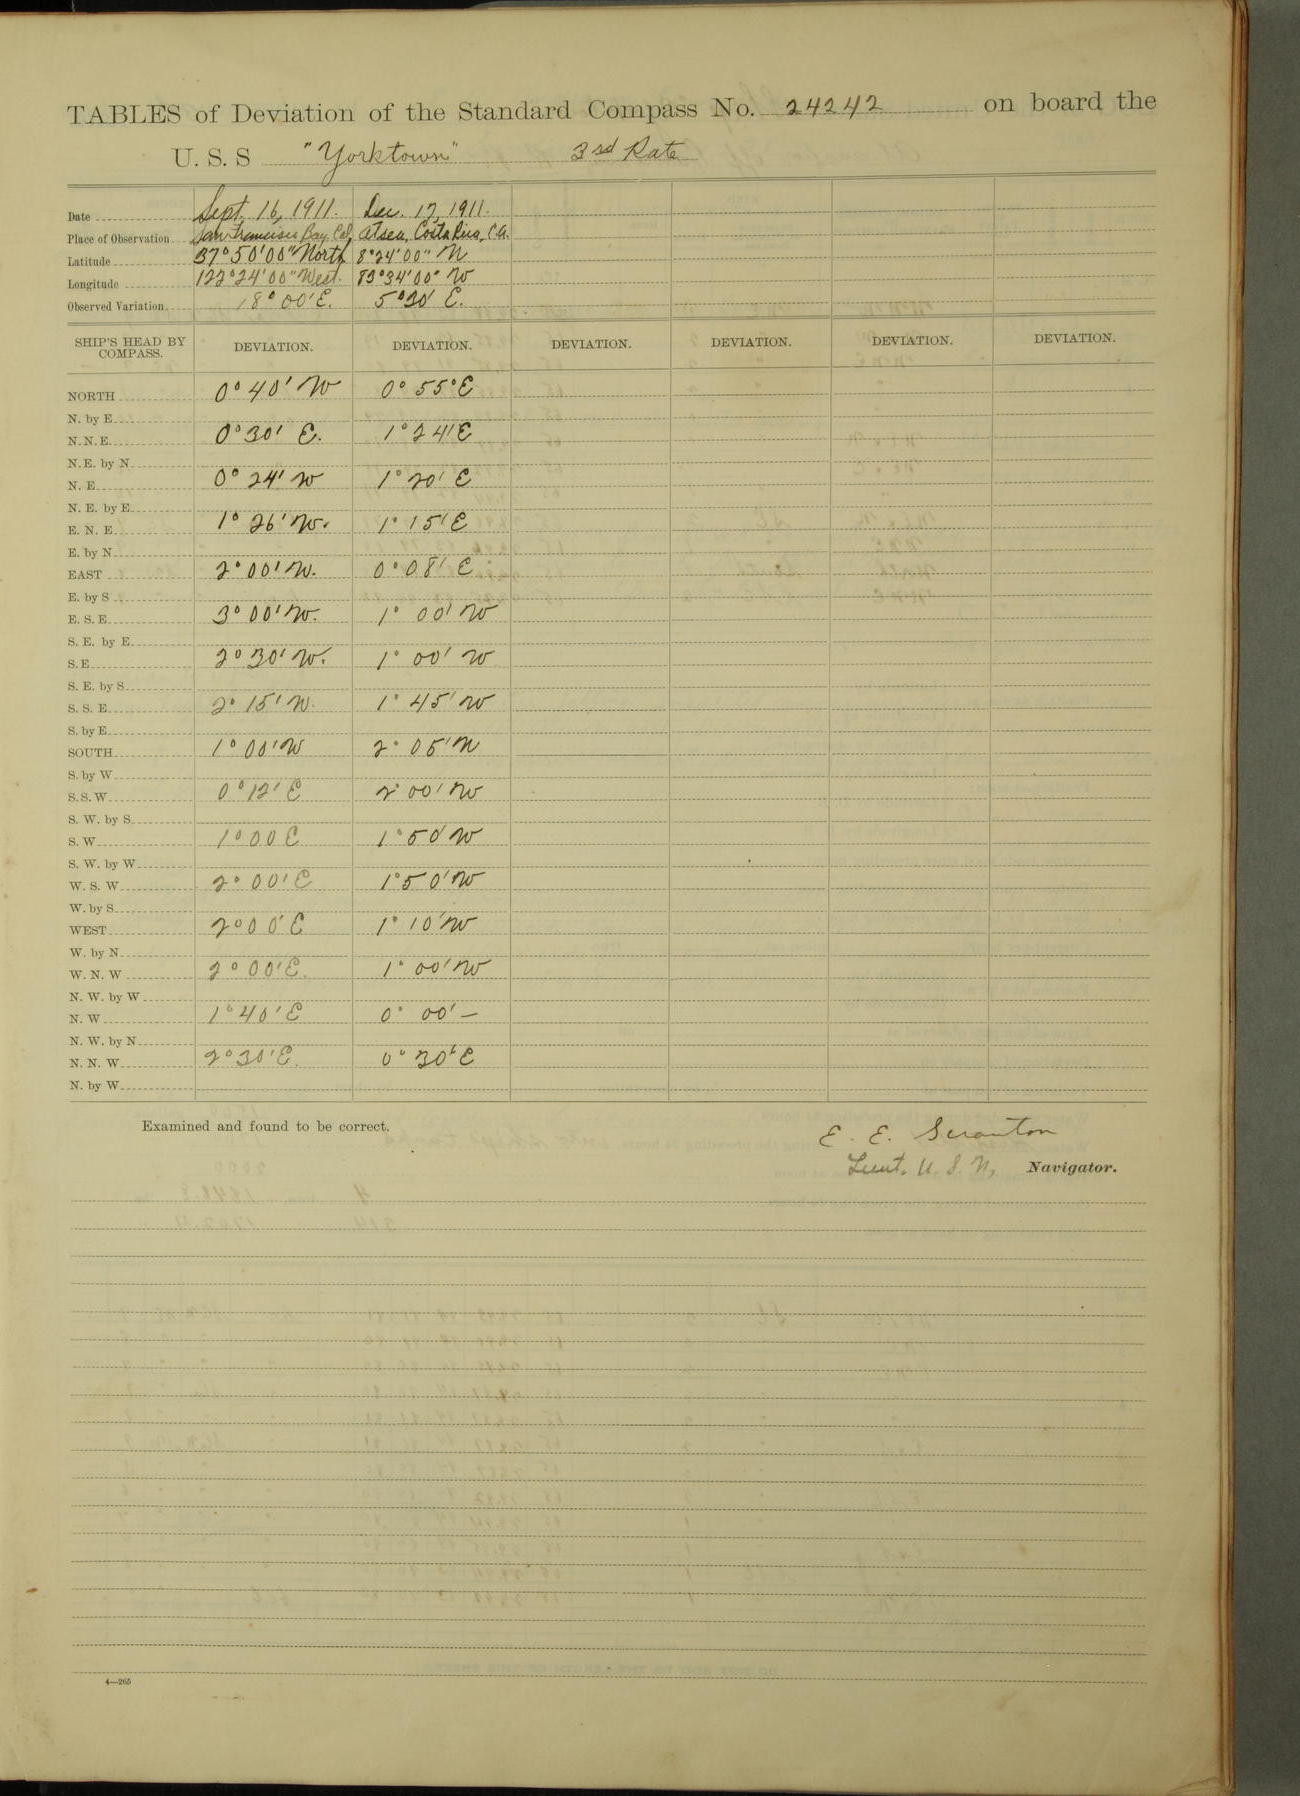 TABLES of Deviation of the Standard Compass No. 24242 on board the
U. S. S "Yorktown" 3rd Rate
Date Sept. 16, 1911. Dec. 17, 1911.
Place of Observation San Francisco Bay, Cal, At sea, Costa Rica, C.A.
Latitude 37° 50' 00" North 8° 24' 00" N
Longitude 122° 24' 00" West. 83° 34' 00" W
Observed Variation 18° 00' E. 5° 20' E.
SHIP'S HEAD BY COMPASS. DEVIATION. DEVIATION. DEVIATION. DEVIATION. DEVIATION. DEVIATION.
NORTH 0° 40' W 0° 55° E
N. by E
N. N. E. 0° 30' E. 1° 24' E
N. E. by N
N. E 0° 24' W 1° 20' E
N. E. by E
E. N. E 1° 26' W. 1° 15' E
E. by N
EAST 2° 00' W. 0° 08' E
E. by S
E. S. E 3° 00' W. 1° 00' W
S. E. by E
S. E 2° 30' W. 1° 00' W
S. E. by S
S. S. E 2° 15' W. 1° 45' W
S. by E
SOUTH 1° 00' W 2° 05' W
S. by W
S. S. W 0° 12' E 2° 00' W
S. W. by S
S. W 1° 00 E 1° 50' W
S. W. by W
W. S. W 2° 00' E 1° 50' W
W. by S
WEST 2° 00' E 1° 10' W
W. by N
W. N. W 2° 00' E. 1° 00' W
N. W. by W
N. W 1° 40' E 0° 00' —
N. W. by N
N. N. W 2° 30' E. 0° 30' E
N. by W
Examined and found to be correct.
E. E. Scranton
Lieut. U. S. N, Navigator.
4—265